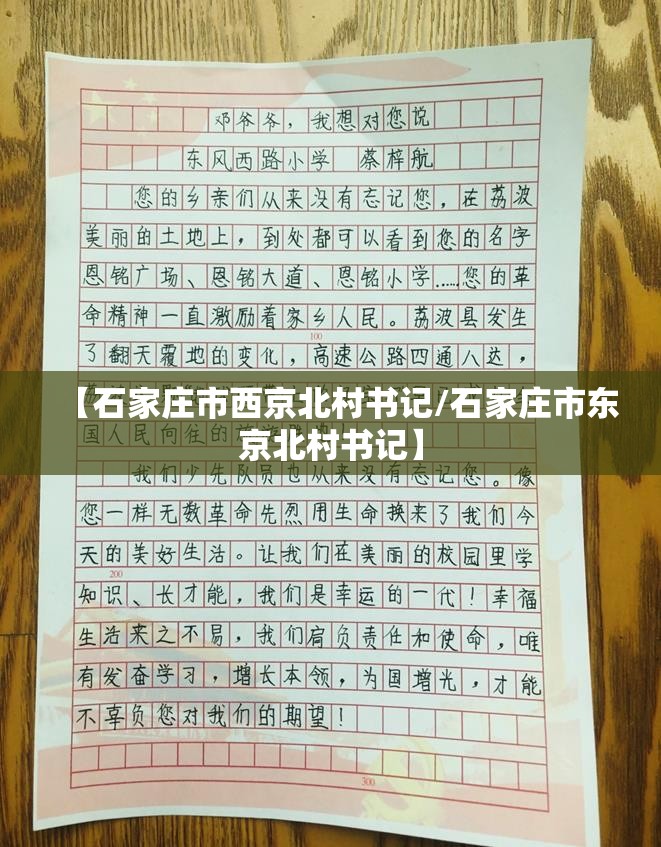 邓爷爷，我想对您说
东风西路小学 蔡梓航
您的乡亲们从来没有忘记您，在荔波
美丽的土地上，到处都可以看到您的名字
恩铭广场、恩铭大道、恩铭小学……您的革
命精神一直激励着家乡人民。荔波县发生
100
了翻天覆地的变化，高速公路四通八达，
【石家庄市西京北村书记/石家庄市东
国人民向往的
京北村书记】
我们少先队员也从来没有忘记您。像
您一样无数革命先烈用生命换来了我们今
天的美好生活。让我们在美丽的校园里学
200
知识、长才能，我们是幸运的一代！幸福
生活来之不易，我们肩负责任和使命，唯
有发奋学习，增长本领，为国增光，才能
不辜负您对我们的期望！
300